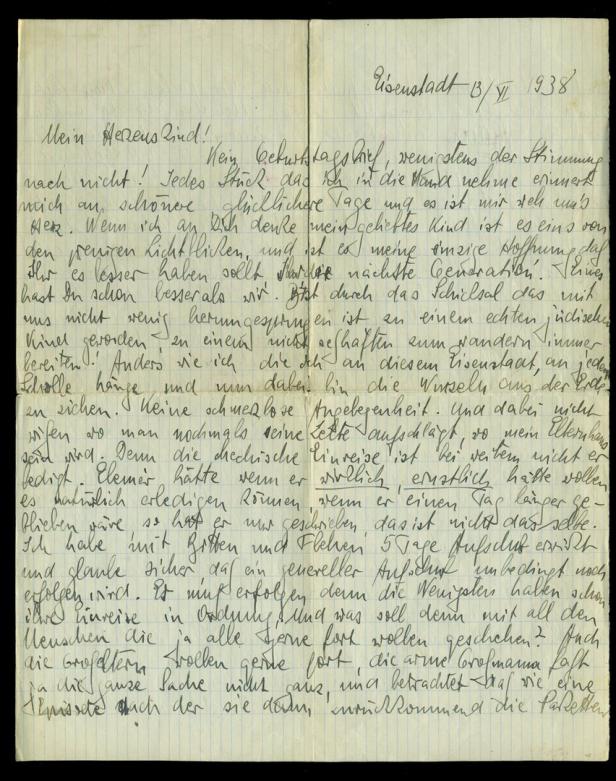 Eisenstadt 13/VI 1938
Mein Herzenskind!
Kein Geburtstagsbrief, wenigstens der Stimmung
nach nicht! Jedes Stück das ich in die Hand nehme erinnert
mich an schönere glücklichere Tage und es ist mir weh um's
Herz. Wenn ich an Dich denke mein geliebtes Kind ist es eins von
den wenigen Lichtblicken, und ist es meine einzige Hoffnung daß
Ihr es besser haben sollt die nächste Generation. Eines
hast Du schon besser als wir. Bist durch das Schicksal das mit
uns nicht wenig herumgesprungen ist zu einem echten jüdischen
Kind geworden, zu einem nicht seßhaften zum wandern immer
bereiten! Anders wie ich die ich an diesem Eisenstadt, an jeder
Scholle hänge und nun dabei bin die Wurzeln aus der Erde
zu ziehen. Keine schmerzlose Angelegenheit. Und dabei nicht
wissen wo man nochmals seine Zelte aufschlägt, wo mein Elternhaus
sein wird. Denn die chechische Einreise ist bei weitem nicht er
ledigt. Elemér hätte wenn er wirklich, ernstlich hätte wollen
es natürlich erledigen können, wenn er einen Tag länger ge-
blieben wäre so hat er nur geschrieben, das ist nicht dasselbe.
Ich habe mit Bitten und Flehen 5 Tage Aufschub erwirkt
und glaube sicher, daß ein genereller Aufschub unbedingt noch
erfolgen wird. Es muß erfolgen denn die Wenigsten haben schon
ihre Einreise in Ordnung. Und was soll denn mit all den
Menschen die ja alle gerne fort wollen geschehen? Auch
die Großeltern wollen gerne fort, die arme Großmama faßt
ja die ganze Sache nicht ganz, und betrachtet das wie eine
Episode nach der sie dann zurückkommend die Parketten